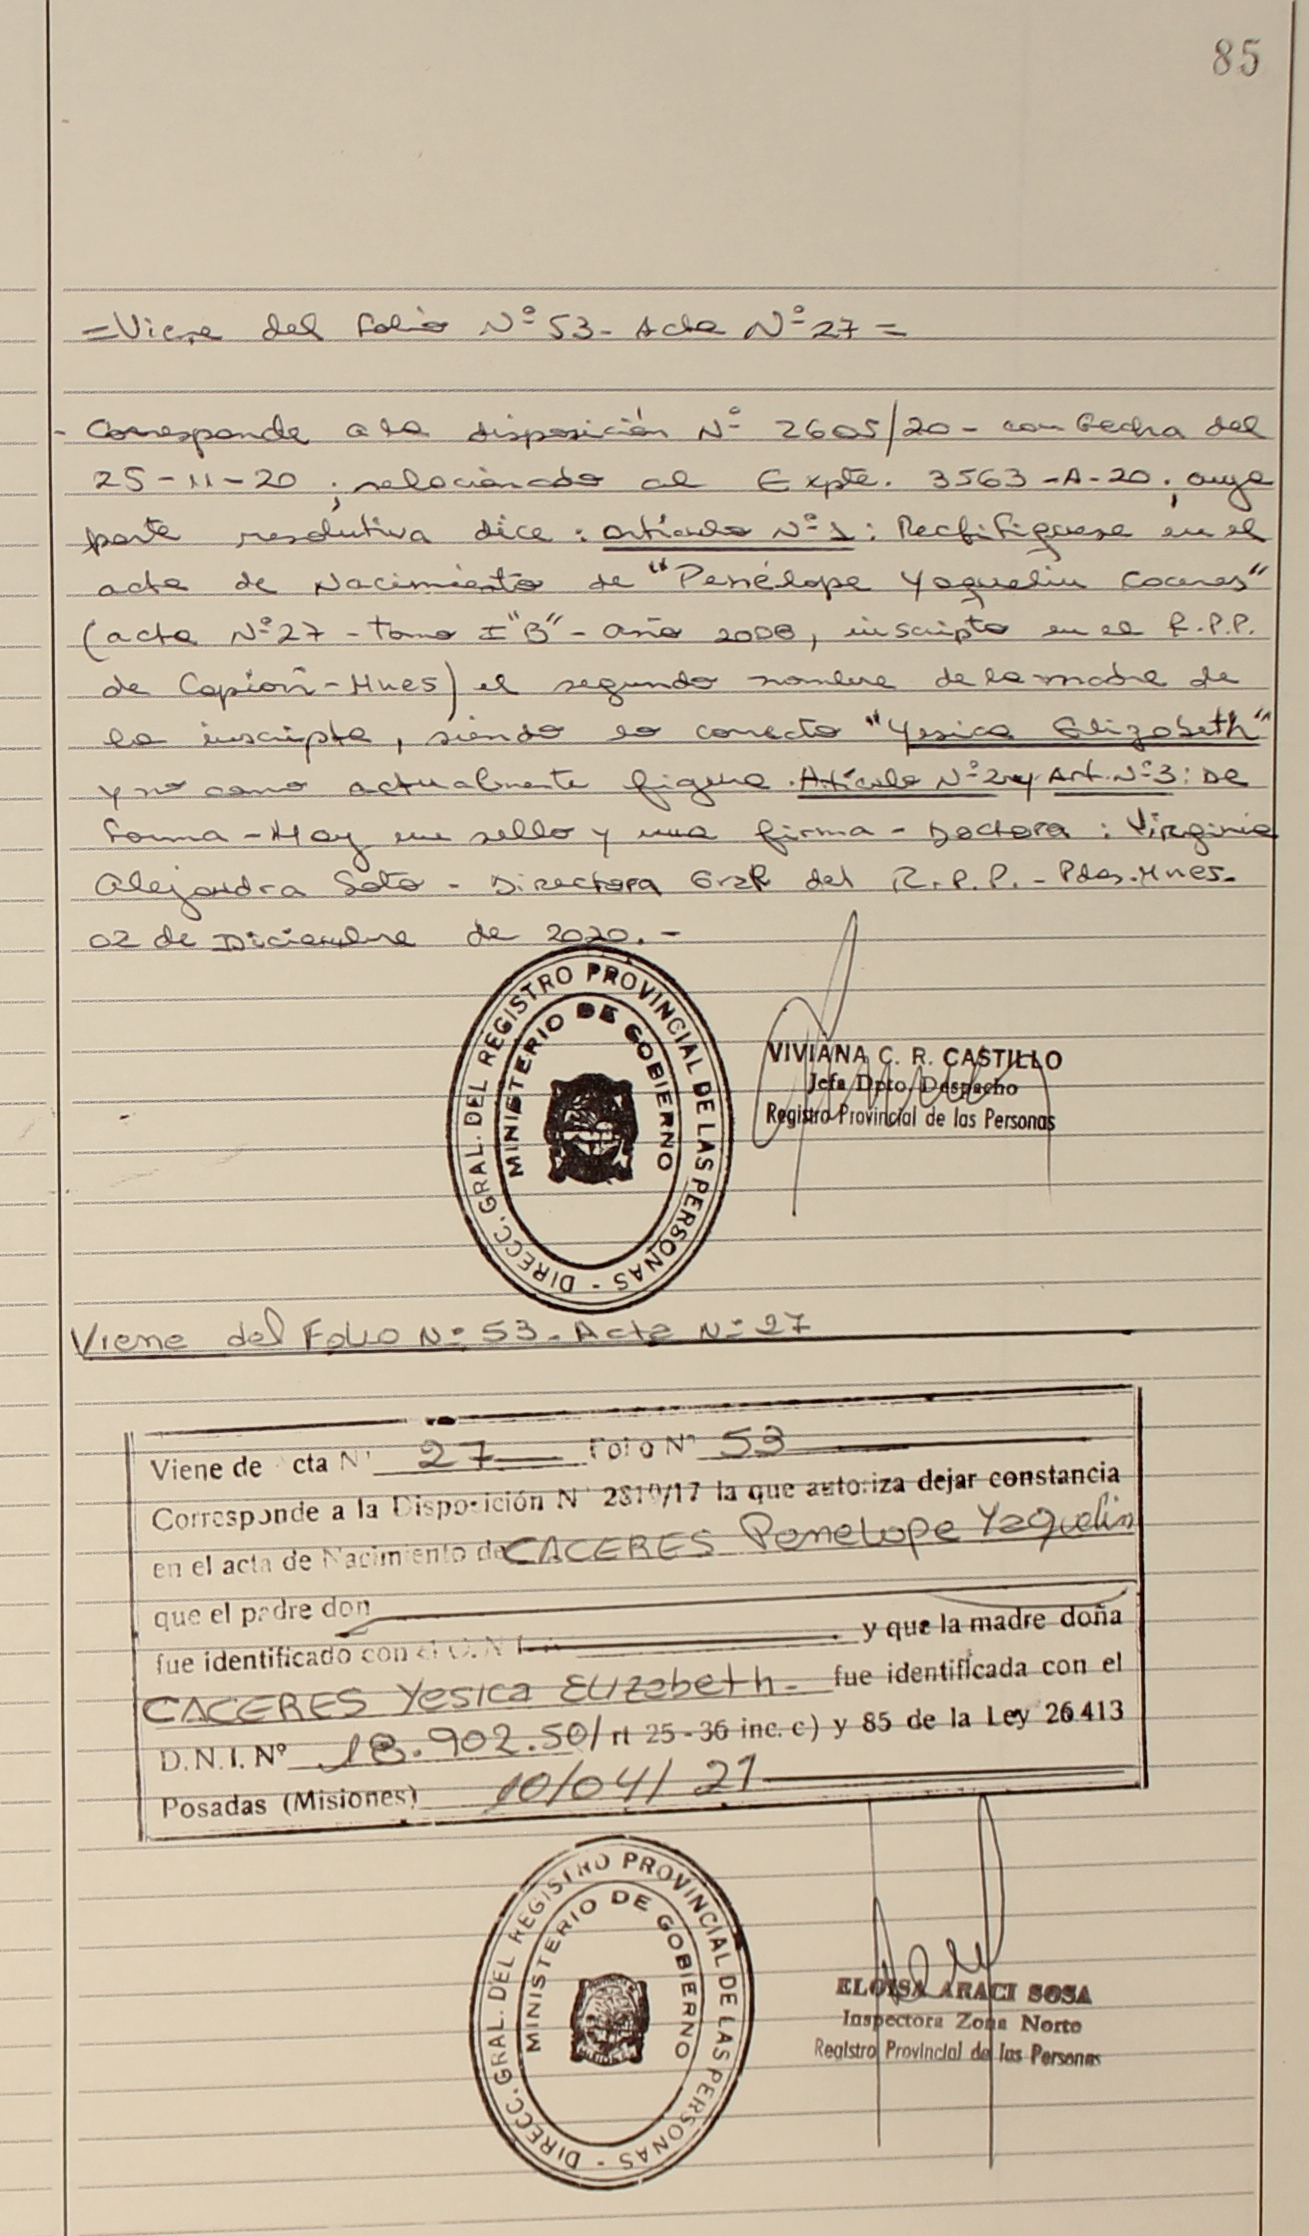 85
=Viene del Folio Nº 53- Acta Nº 27=
- Corresponde a la disposición Nº 2605/20 - con fecha del
25-11-20; relacionado al Expte. 3563-A-20; cuya
parte resolutiva dice: artículo Nº 1: Rectifíquese en el
acta de Nacimiento de "Penélope Yaquelin Caceres"
(acta Nº 27 - tomo I "B" - año 2008, inscripta en el R.P.P.
de Capioví-Mnes) el segundo nombre de la madre de
la inscripta, siendo lo correcto "Yesica Elizabeth"
y no como actualmente figura. Artículo Nº 2 y Art. Nº 3: De
forma - Hay un sello y una firma - Doctora: Virginia
Alejandra Soto - Directora Gral del R.P.P. - Pdas. Mnes.
02 de Diciembre de 2020.-
DIRECC. GRAL. DEL REGISTRO PROVINCIAL DE LAS PERSONAS -
MINISTERIO DE GOBIERNO
VIVIANA C. R. CASTILLO
Jefa Dpto. Despacho
Registro Provincial de las Personas
Viene del Folio Nº 53- Acta Nº 27
Viene de cta Nº 27 Folio Nº 53
Corresponde a la Disposición Nº 2810/17 la que autoriza dejar constancia
en el acta de Nacimiento de CACERES Penelope Yaquelin
que el padre don
fue identificado con el y que la madre doña
CACERES Yesica Elizabeth- fue identificada con el
D.N.I. Nº 18.902.501 rt 25-36 inc. c) y 85 de la Ley 26413
Posadas (Misiones) 10/04/21
DIRECC. GRAL. DEL REGISTRO PROVINCIAL DE LAS PERSONAS -
MINISTERIO DE GOBIERNO
ELOISA ARACI SOSA
Inspectora Zona Norte
Registro Provincial de las Personas